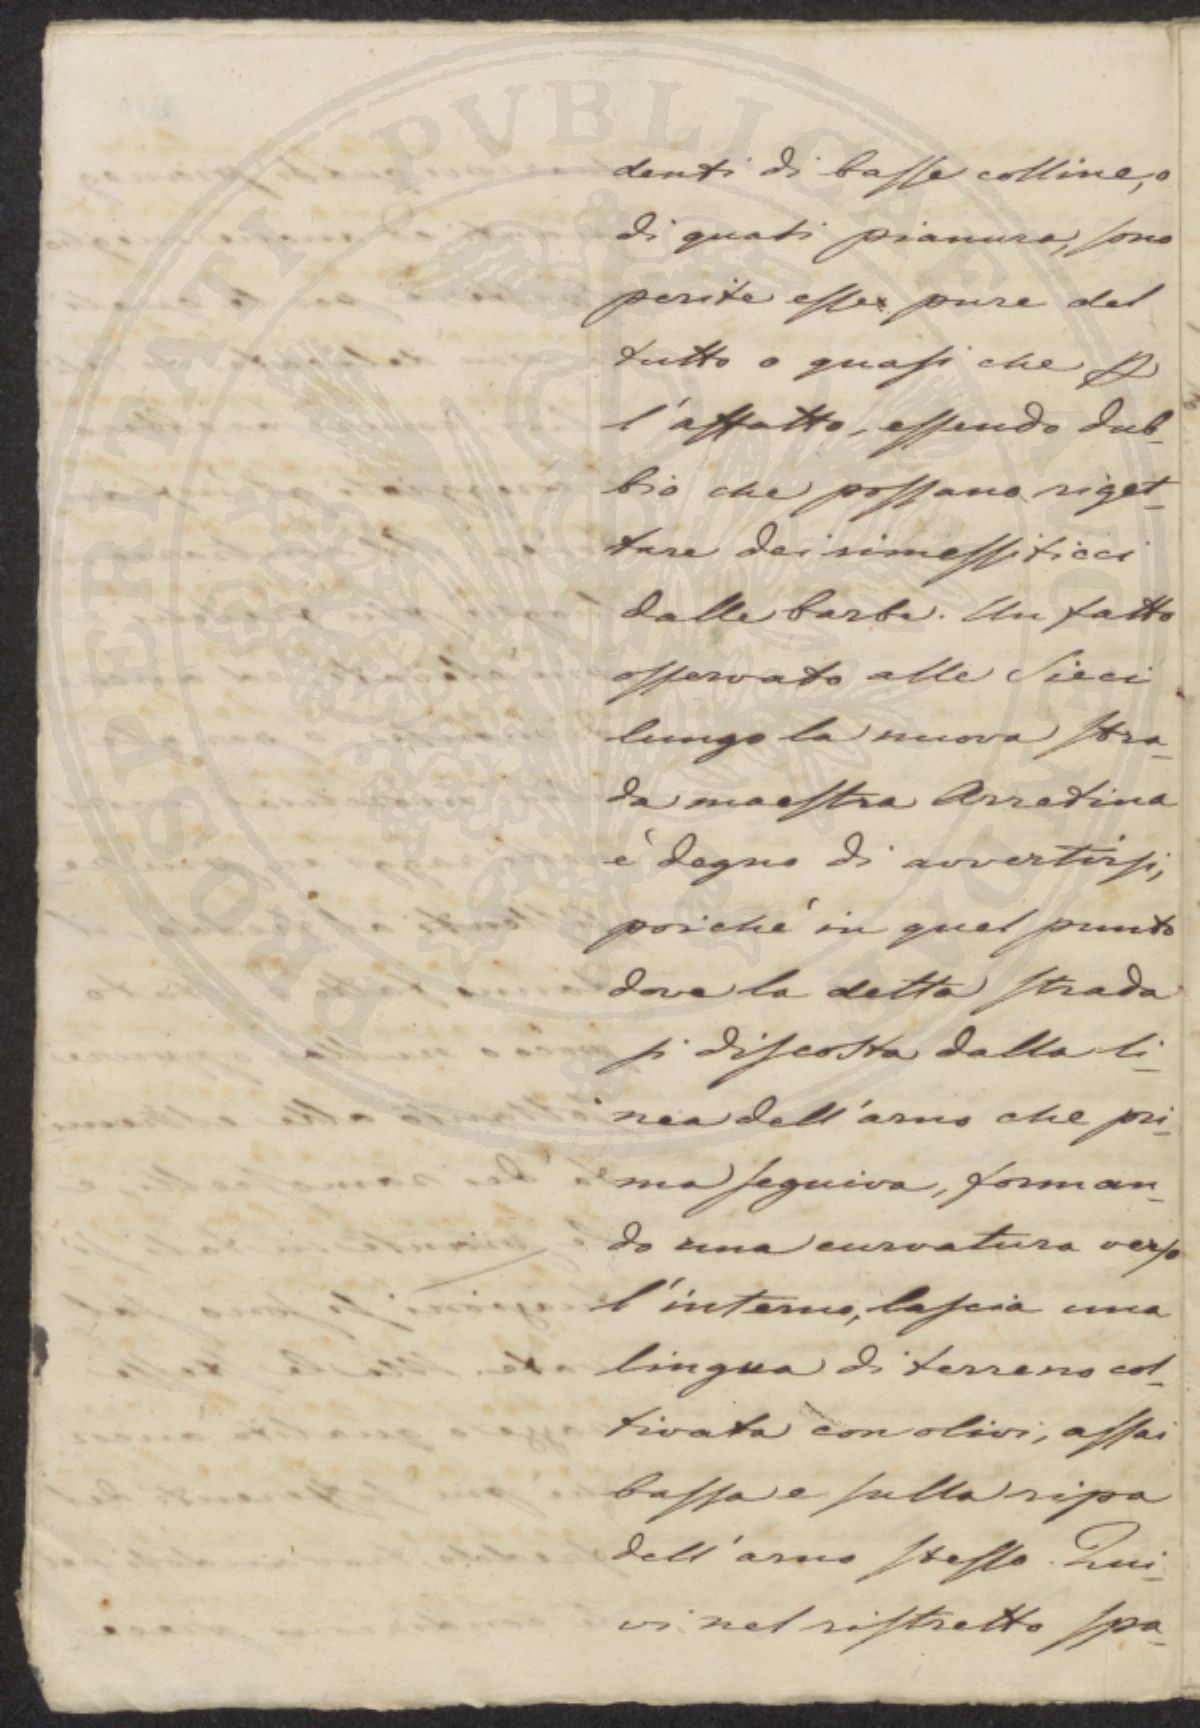 PROSPERITATI PVBLICAE AVGENDAE
denti di basse colline, o
di quasi pianura, sono
perite esse pure del
tutto o quasi che p
l'affatto, essendo dub-
bio che possano riget-
tare dei rimessiticci
dalle barbe. Un fatto
osservato alle Sieci
lungo la nuova stra-
da maestra Arretina
è degno di avvertirsi,
poiché in quel punto
dove la detta strada
si discosta dalla li-
nea dell'arno che pri-
ma seguiva, forman-
do una curvatura verso
l'interno, lascia una
lingua di terreno col-
tivata con olivi, assai
bassa e sulla ripa
dell'arno stesso. Qui-
vi nel ristretto spa-